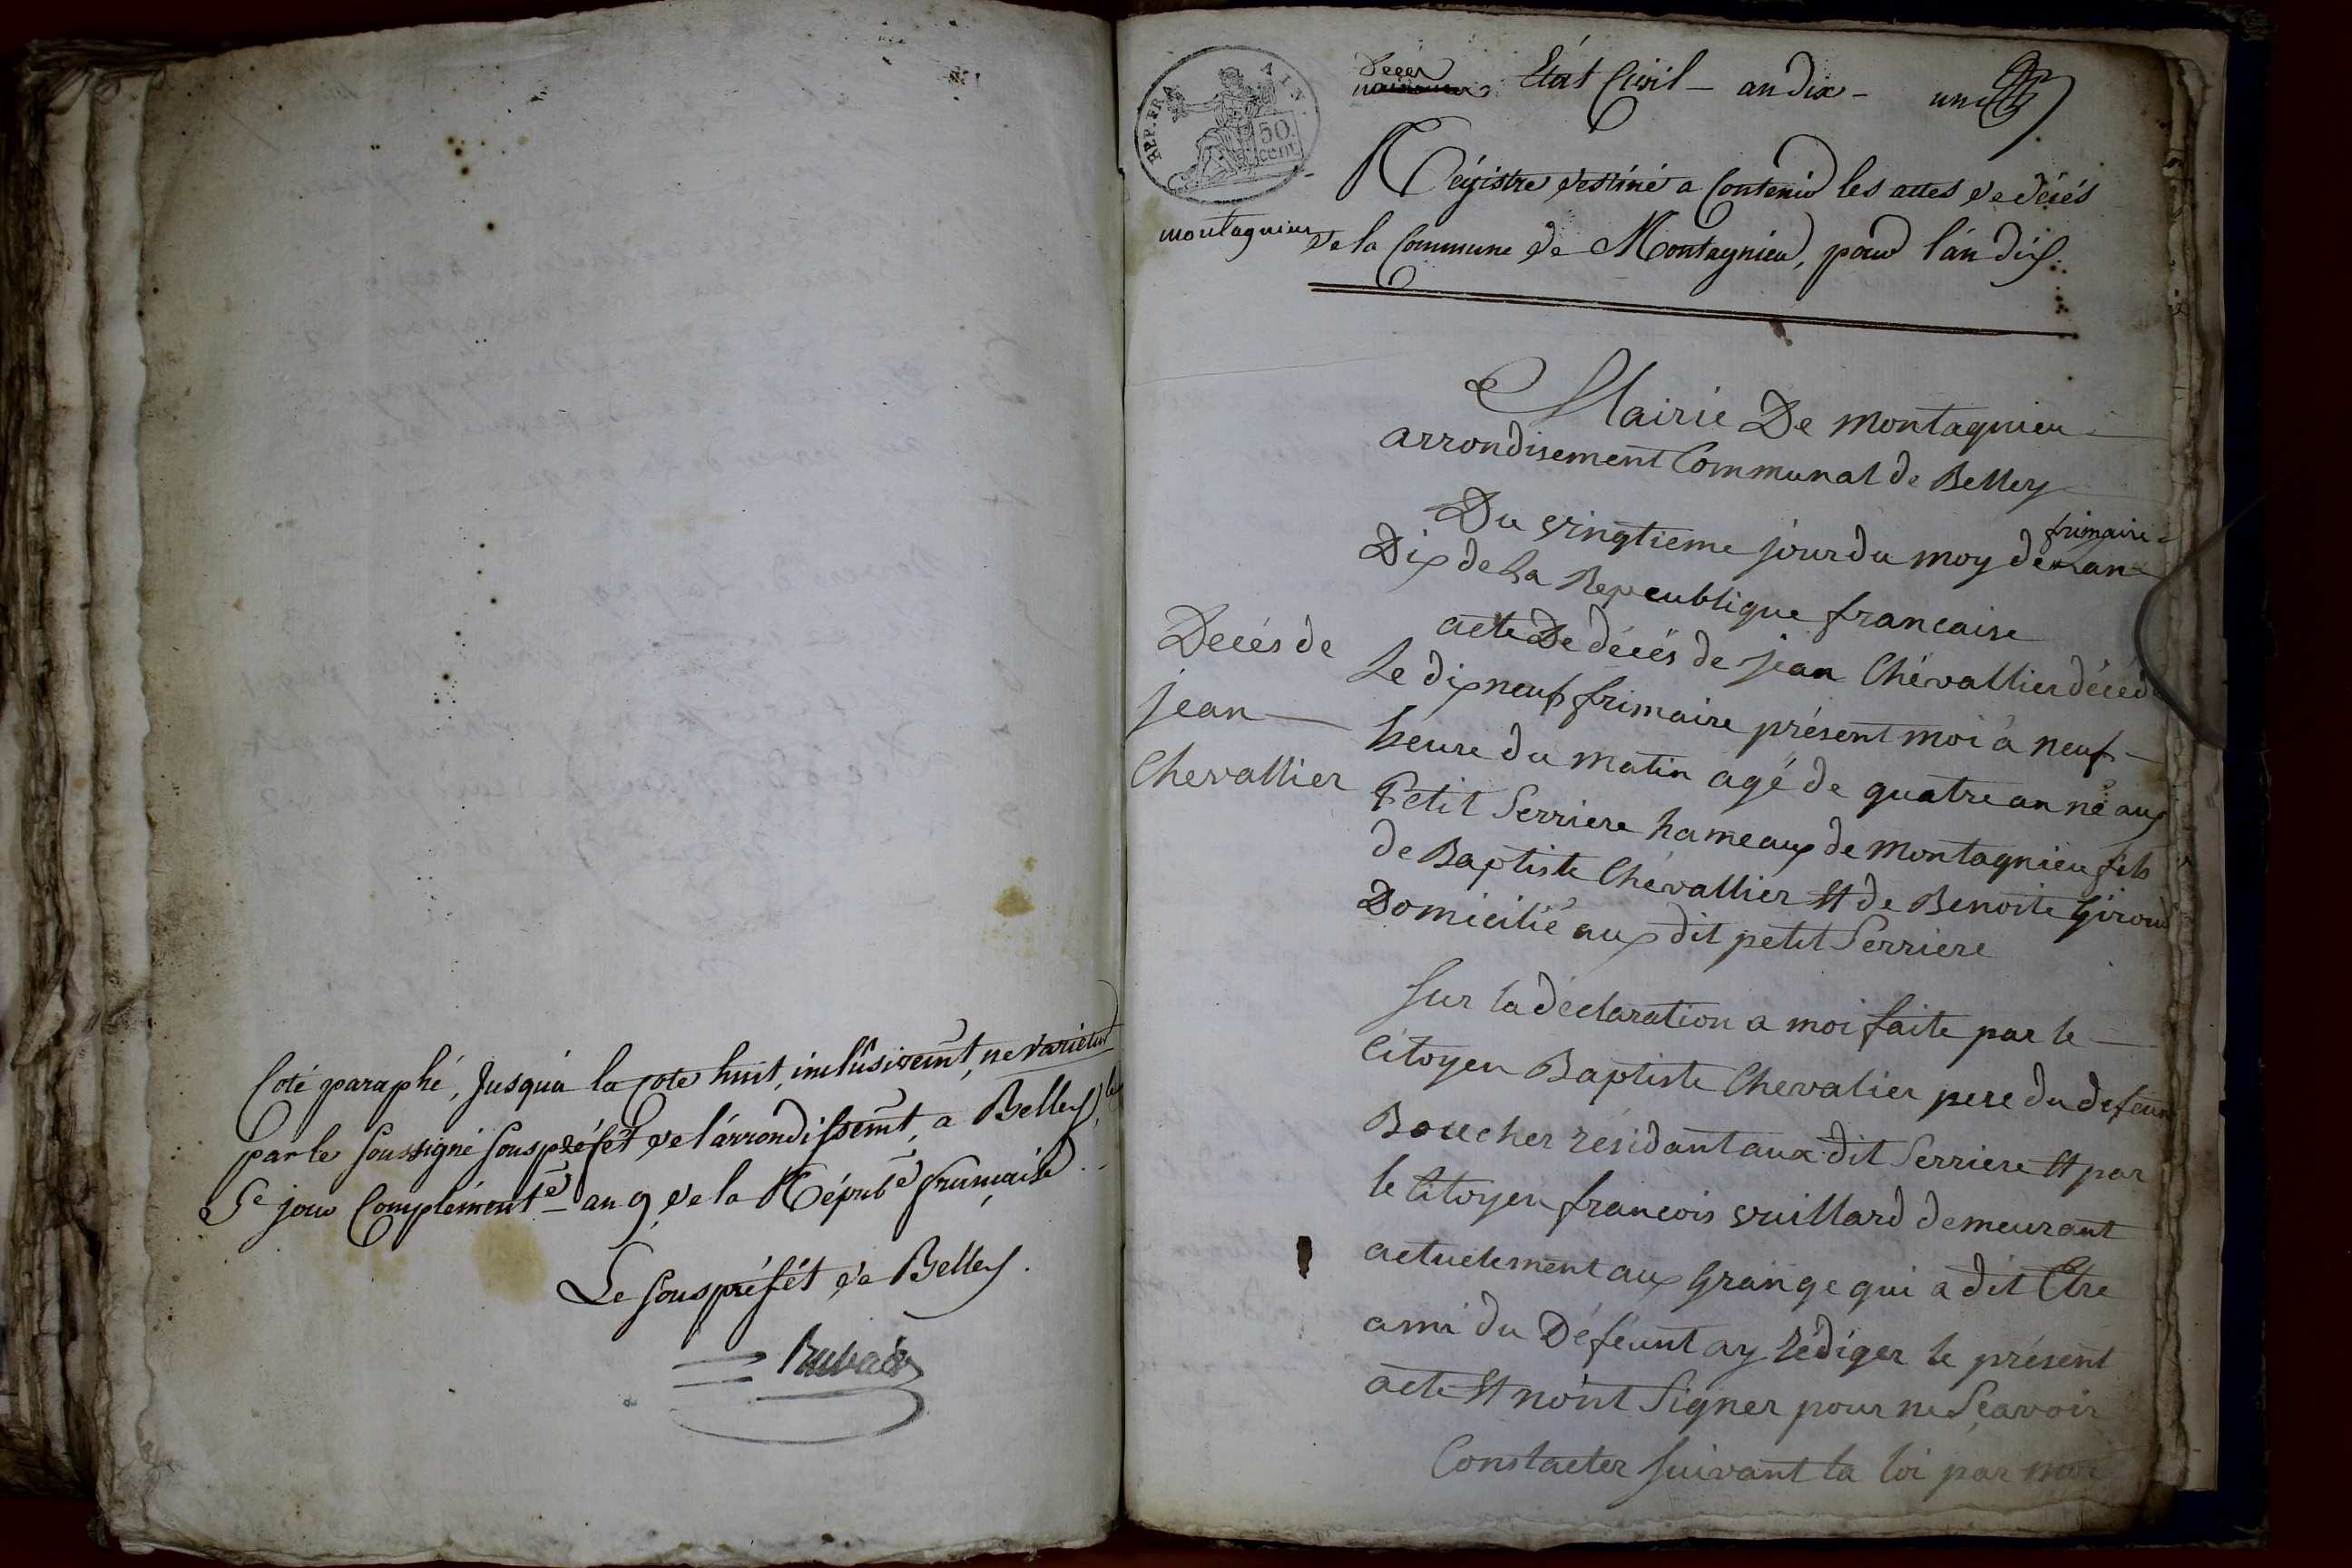 Coté paraphé, Jusqu'à la Cote huit, inclusivemt, ne varietur
par le soussigné sous préfét de l'arrondissemt, a Belley, le
5e jour Complément.e an 9 de la Répub.e française.
Le sous préfét de Belley.
RÉP. FRA. AIN.
50.
cent.
Décés Etat Civil - an dix - un
Régistre destiné a Contenir les actes de décés
montagnieu
de la Commune de Montagnieu, pour l'an dix.
Mairie De Montagnieu
arrondisement Communal de Belley
Du vingtieme jour du moy de frimaire an
Dix de La Repeublique francaise
Décés de
jean
Chevallier
acte De décés de jean Chévallier décédé
Le dix neuf frimaire présent moi à neuf
heure du matin agé de quatre an né aux
Petit Serriere hameaux de Montagnieu fils
de Baptiste Chévallier Et de Benoite Giroud
Domicilié aux dit petit Serriere
Sur la déclaration a moi faite par le
Citoyen Baptiste Chevalier pere du defeunt
Boucher résidant aux dit Serriere Et par
le Citoyen francois vuillard demeurant
actuelement aux Grange qui a dit Etre
ami du Déféunt ay rédiger le présent
acte Et n'ont Signer pour ne Sçavoir
Constacter suivant la loi par moi